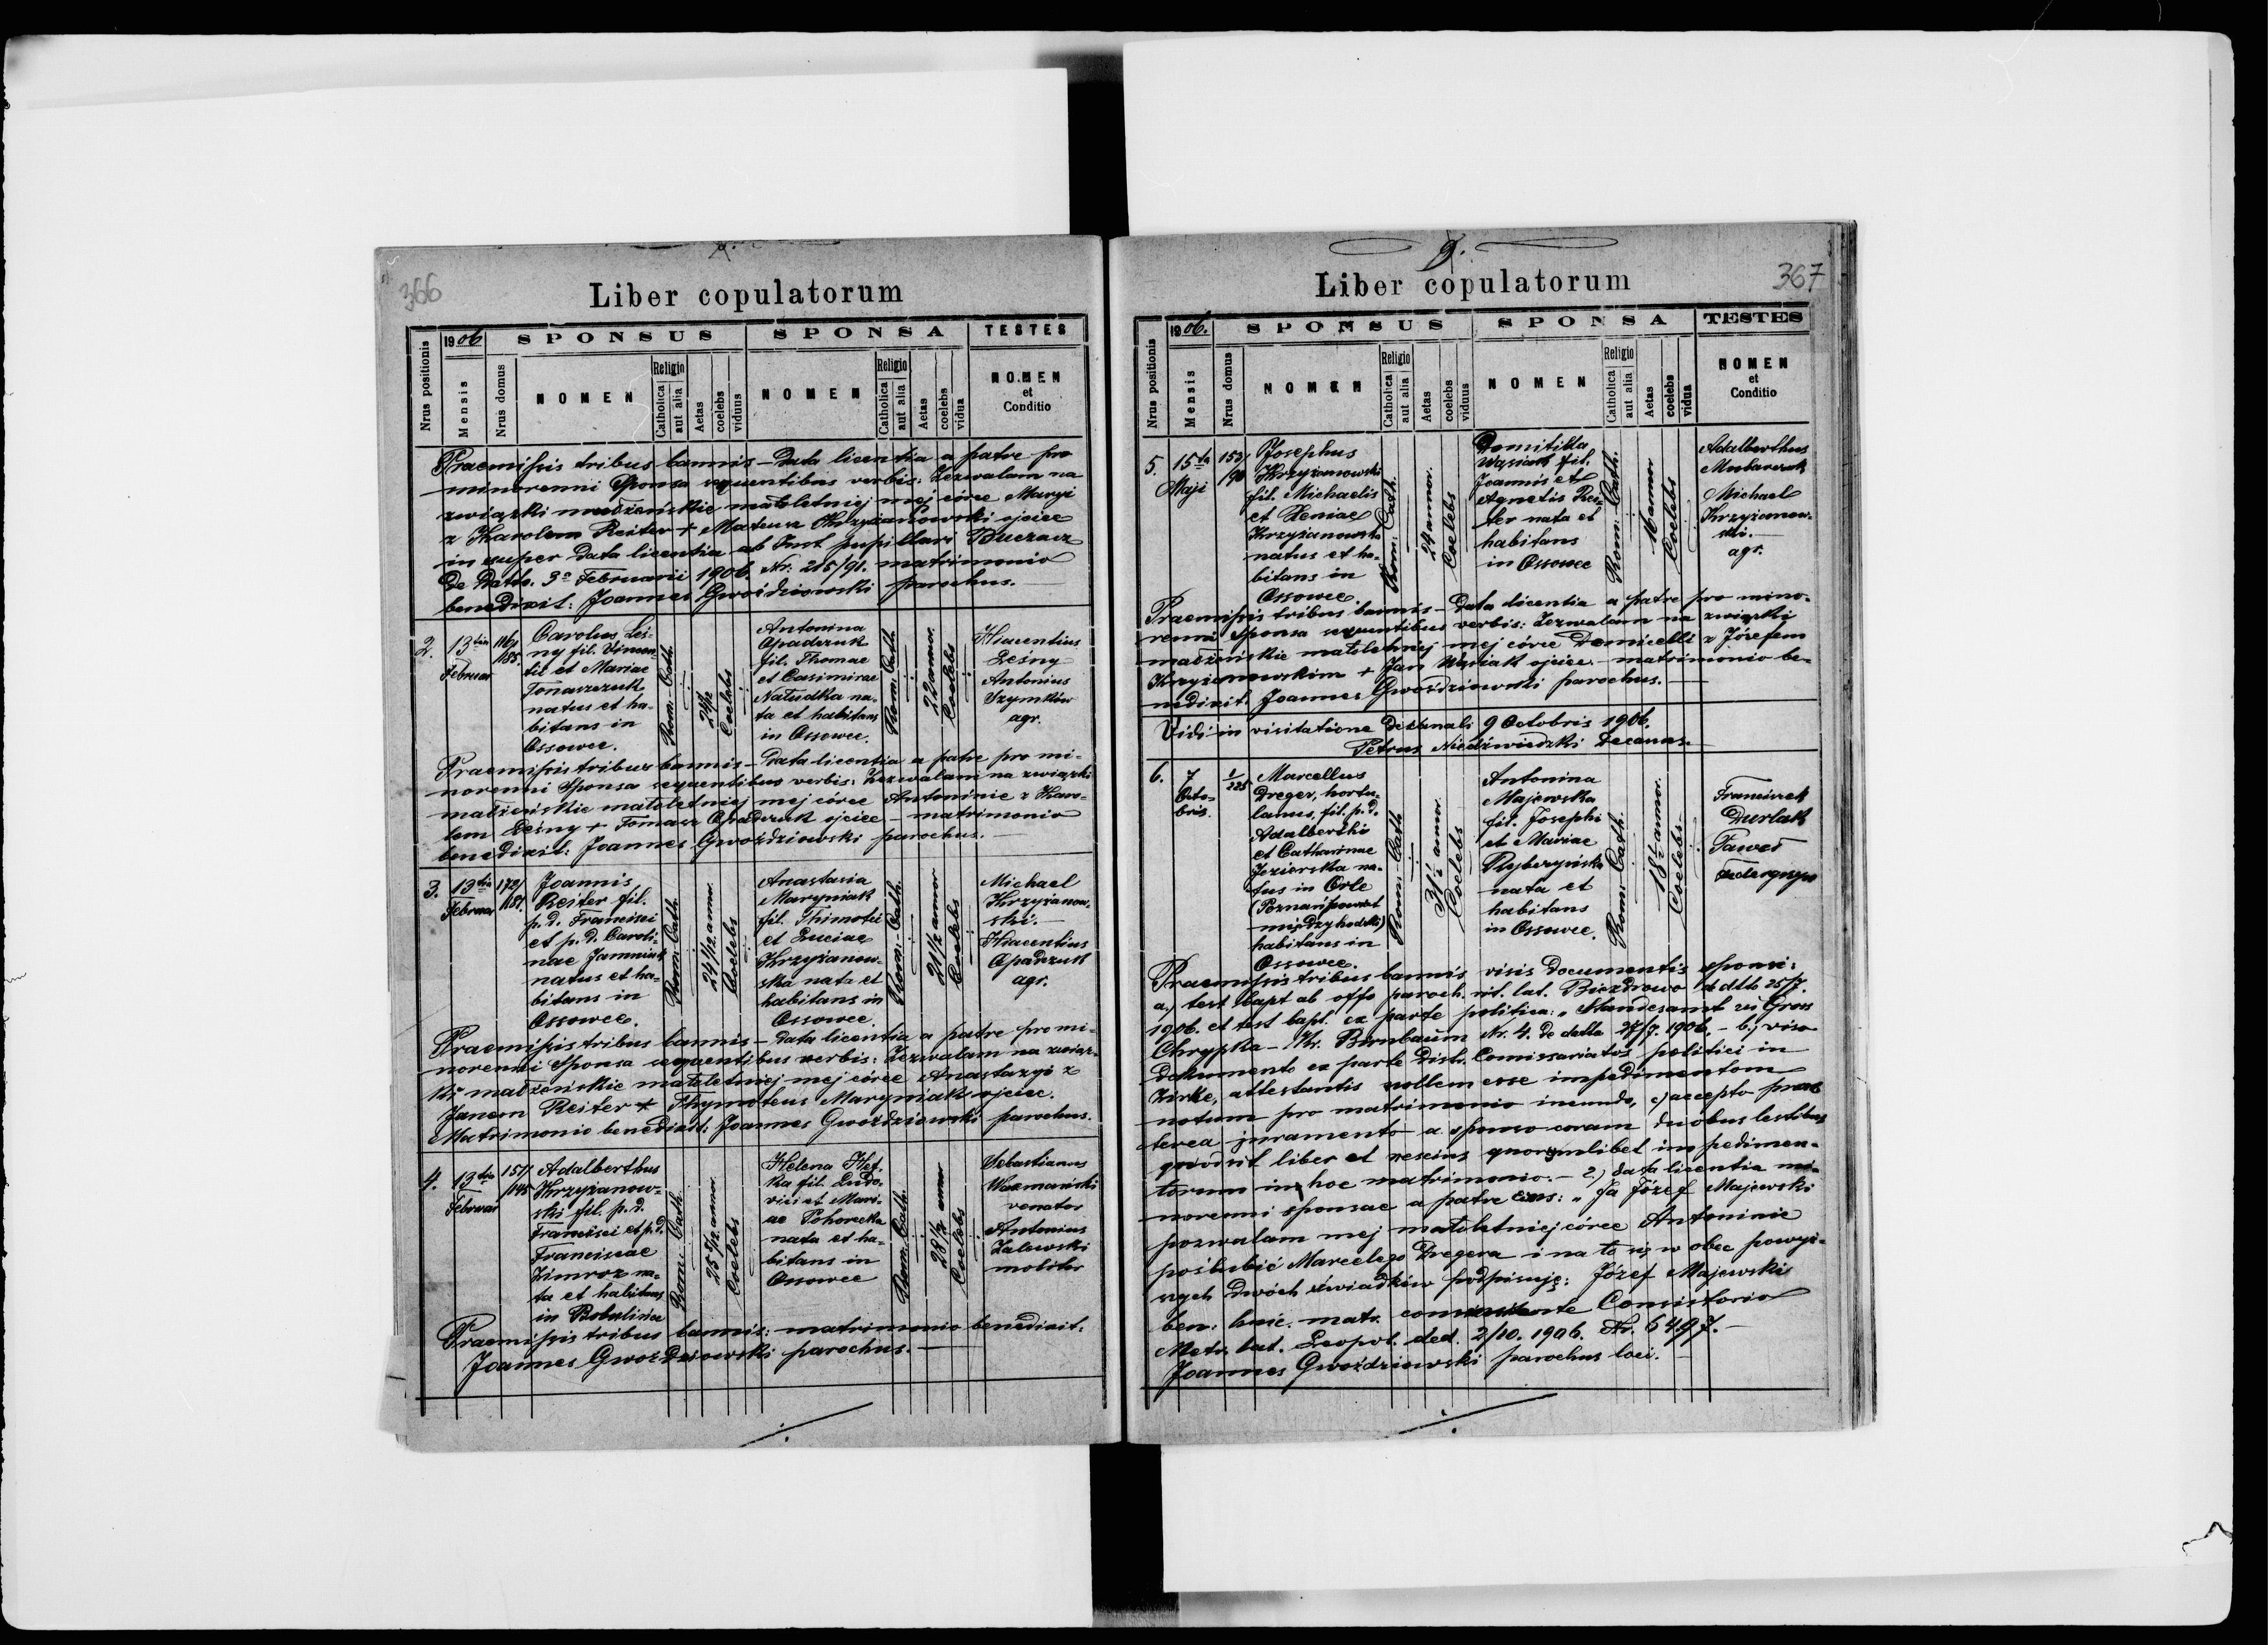 366
Liber copulatorum
Nrus positionis
1906
Mensis
Nrus domus
SPONSUS
NOMEN
Religio
Catholica
aut alia
Aetas
coelebs
viduus
SPONSA
NOMEN
Religio
Catholica
aut alia
Aetas
coelebs
vidua
TESTES
NOMEN
et
Conditio
Praemissis tribus bannis – Data licentia a patre pro
minorenni Sponsa sequentibus verbis: Zezwalam na
związki małżeńskie małoletniej mej córce Maryi
z Karolem Reiter + Mateusz Krzyżanowski ojciec
in super data licentia ab Inst pupillari Buczacz
de datto 3º Februarii 1906. Nr: 215/91. matrimonio
benedixit: Joannes Gwoździowski parochus.
2.
13tia
Februar
116/
185.
Carolus Leś-
ny fil. Vincen-
tii et Mariae
Tomaszczuk
natus et ha-
bitans in
Ossowce.
Rom: Cath.
24 1/2
Coelebs
Antonina
Opadczuk
fil. Thomae
et Casimirae
Natudka na-
ta et habitans
in Ossowce.
Rom: Cath.
22 annor.
Coelebs
Hiacentius
Leśny
Antonius
Szymków
agr.
Praemissis tribus bannis – Data licentia a patre pro mi-
norenni Sponsa sequentibus verbis: Zezwalam na związki
małżeńskie małoletniej mej córce Antoninie z Karo-
lem Leśny + Tomasz Opadczuk ojciec – matrimonio
benedixit: Joannes Gwoździowski parochus.
3.
13tia
Februar
172/
181.
Joannis
Reiter fil.
p. d. Francisci
et p. d. Caroli-
nae Jamniuk
natus et ha-
bitans in
Ossowce.
Rom: Cath.
24 1/2 annor.
Coelebs
Anastasia
Maryniak
fil. Thimotei
et Luciae
Krzyżanow-
ska nata et
habitans in
Ossowce.
Rom: Cath.
21 1/2 annor
Coelebs
Michael
Krzyżanow-
ski.
Hiacentius
Opadczuk
agr.
Praemissis tribus bannis – Data licentia a patre pro mi-
norenni Sponsa sequentibus verbis: Zezwalam na związ-
ki małżeńskie małoletniej mej córce Anastazyi z
Janem Reiter + Thymoteus Maryniak ojciec.
Matrimonio benedixit: Joannes Gwoździowski parochus.
4.
13tia
Februar
157/
145
Adalberthus
Krzyżanow-
ski fil. p. d.
Francisci et p. d.
Franciscae
Zimroz na-
ta et habitans
in Bobulińce
Rom: Cath.
25 5/12 annor.
Coelebs
Helena Het-
ka fil. Ludo-
vici et Mari-
ae Pohorecka
nata et ha-
bitans in
Ossowce
Rom: Cath.
28 1/2 annor
Coelebs
Sebastianus
Wozmański
venator
Antonius
Zalewski
molitor
Praemissis tribus bannis: matrimonio benedixit:
Joannes Gwoździowski parochus.
9.
Liber copulatorum
367
Nrus positionis
1906.
Mensis
Nrus domus
SPONSUS
NOMEN
Religio
Catholica
aut alia
Aetas
coelebs
viduus
SPONSA
NOMEN
Religio
Catholica
aut alia
Aetas
coelebs
vidua
TESTES
NOMEN
et
Conditio
5.
15ta
Maji
152/
190
Josephus
Krzyżanowski
fil. Michaelis
et Xeniae
Krzyżanowska
natus et ha-
bitans in
Ossowce.
Rom: Cath.
24 annor.
Coelebs
Domitilla
Wąsiak fil.
Joannis et
Agnetis Rei-
ter nata et
habitans
in Ossowce
Rom: Cath.
16 annor
Coelebs
Adalberthus
Mucharczuk
Michael
Krzyżanow-
ski.
agr.
Praemissis tribus bannis – Data licentia a patre pro mino-
renni Sponsa sequentibus verbis: Zezwalam na związki
małżeńskie małoletniej mej córce Domicelli z Józefem
Krzyżanowskim + Jan Wąsiak ojciec. – matrimonio be-
nedixit Joannes Gwoździowski parochus.
Vidi in visitatione Decanali 9 Octobris 1906.
Petrus Niedźwiedzki Decanus.
6.
7
Octo-
bris.
1/
225
Marcellus
Dreger, hortu-
lanus, fil. p. d.
Adalberthi
et Catharinae
Jezierska na-
tus in Orle
(Poznań powiat
międzychodzki)
habitans in
Ossowce.
Rom: Cath
31 1/2 annor.
Coelebs
Antonina
Majewska
fil. Josephi
et Mariae
Rybczyńska
nata et
habitans
in Ossowce.
Rom: Cath.
18 1/2 annor.
Coelebs
Franciszek
Durlak
Paweł
Praemissis tribus bannis visis documentis sponsi:
a) test bapt ab offo paroch. rit. lat. Biezdrowo de dtto 25/7.
1906. et test bapt. ex parte politica: „Standesamt zu Gross
Chrypska – Kr. Birnbaum Nr. 4. de datto 27/7. 1906. – b) viso
dokumento ex parte Distr. Comissariatus politici in
Zirke, attestantis nullum esse impedimentum
notum pro matrimonio ineundo, c) accepto prae-
terea juramento a sponso coram duobus testibus
quod sit liber et nescius quorumlibet impedimen-
torum in hoc matrimonio. – 2) data licentia mi-
norenni sponsae a patre eius: „Ja Józef Majewski
pozwalam mej małoletniej córce Antoninie
poślubić Marcelego Dregera i na to się w obec powyż-
szych dwóch świadków podpisuję: Józef Majewski
ben: huic. matr. Consistorio
Metr. lat. Leopol. ded. 2/10. 1906. Nr. 6497. –
Joannes Gwoździowski parochus loci.